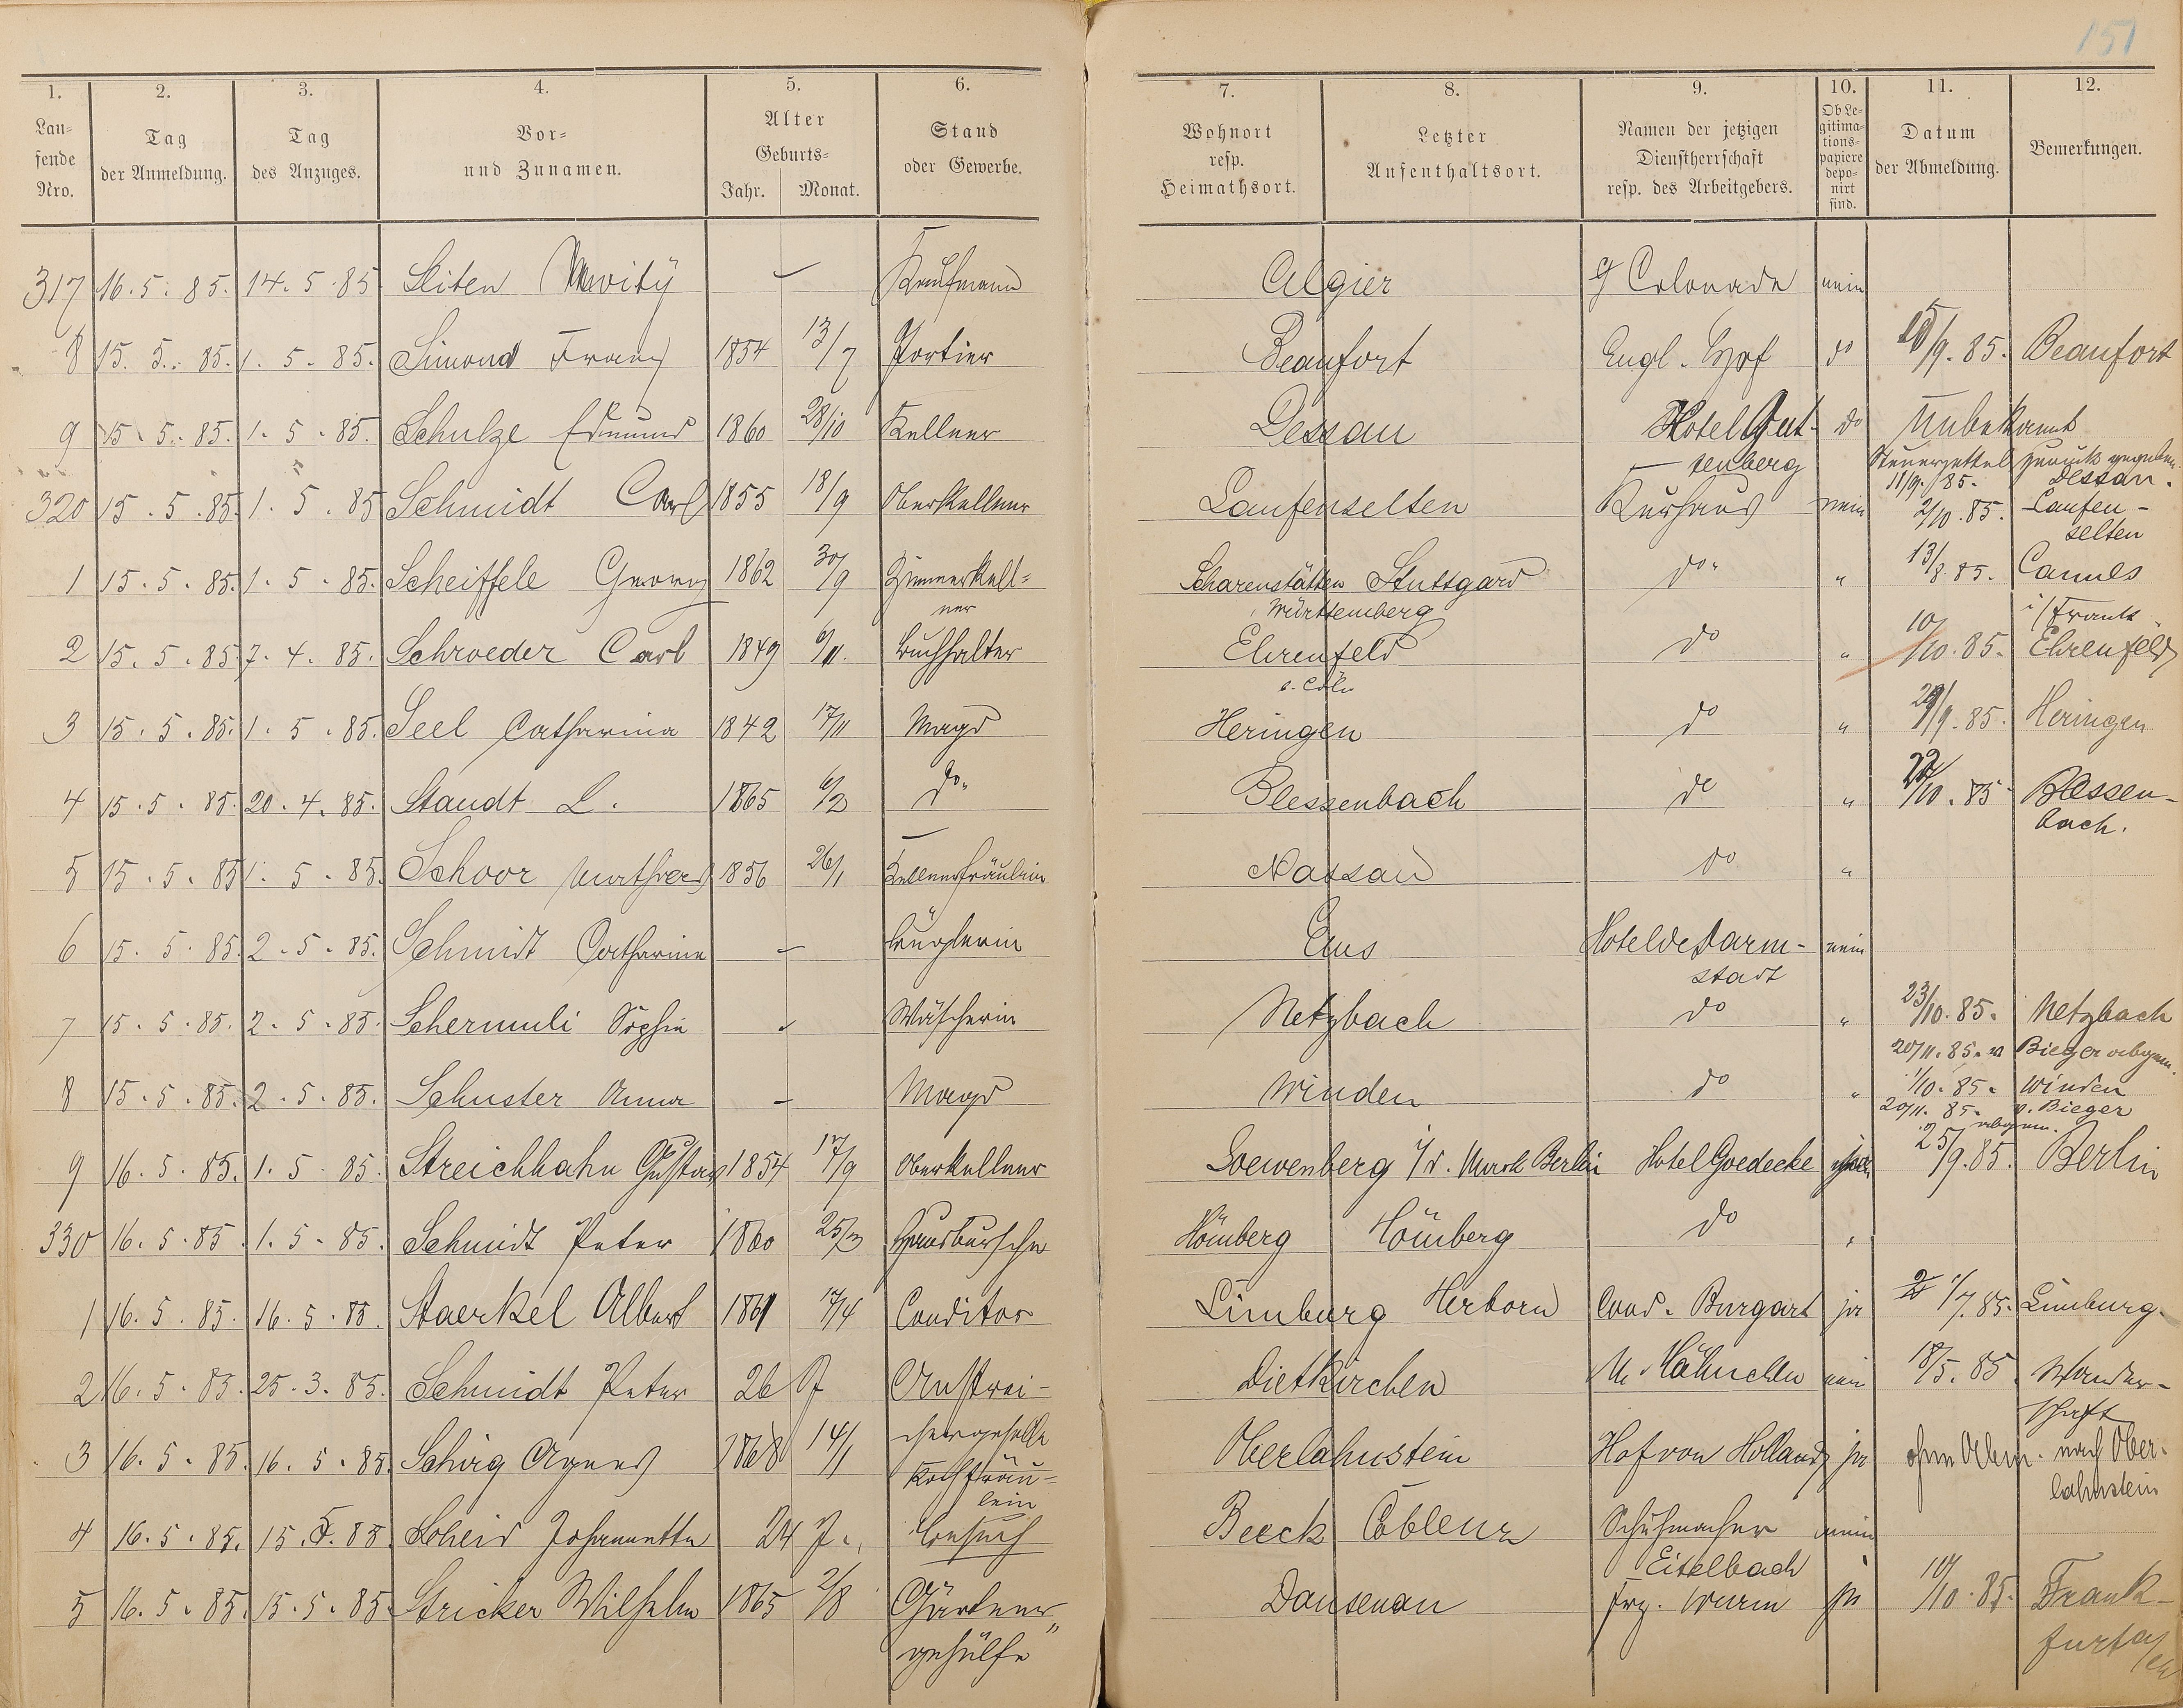 151
1. 2. 3. 4. 5. 6. 7. 8. 9. 10. 11. 12.
Lau-
fende
Nro.
Tag
der Anmeldung.
Tag
des Anzuges.
Vor-
und Zunamen.
Alter
Geburts-
Jahr. Monat.
Stand
oder Gewerbe.
Wohnort
resp.
Heimathsort.
Letzter
Aufenthaltsort.
Namen der jetzigen
Dienstherrschaft
resp. des Arbeitgebers.
Ob Le-
gitima-
tions-
papiere
depo-
nirt
sind.
Datum
der Abmeldung.
Bemerkungen.
317 16. 5. 85. 14. 5. 85 — Kaufmann Algier Colonade nein
8 15. 5. 85. 1. 5. 85. Simond Franz 1854 13/7 Portier Beaufort Engl. Hof do /9. 85. Beaufort
9 15. 5. 85. 1. 5. 85. Schulze Edmund 1860 28/10 Kellner Dessau Hotel Gut- do Unbekannt
tenberg Steuerzettel zurück gegeben
11/9. 85. Dessau.
320 15. 5. 85. 1. 5. 85 Schmidt Carl 1855 18/9 Oberkellner Laufenselten Kurhaus nein 2/10. 85. Laufen-
selten
1 15. 5. 85. 1. 5. 85. Scheiffele Georg 1862 30/9 Zimmerkell- Scharenstätten Stuttgard do. " 13/8. 85. Cannes
ner Württemberg i/Frank.
2 15. 5. 85. 7. 4. 85. Schroeder Carl 1849 6/11. Buchhalter Ehrenfeld do " 10/10. 85. Ehrenfeld
b. Cöln
3 15. 5. 85. 1. 5. 85. Seel Catharina 1842 17/11 Magd Heringen do " 29/9. 85. Heringen
4 15. 5. 85. 20. 4. 85. Staudt L. 1865 6/3 do. Blessenbach do " /10. 85 Blessen-
bach.
5 15. 5. 85 1. 5. 85. Schoor 1856 26/1 Küchenfräulein Nassau do "
6 15. 5. 85. 2. 5. 85. Schmidt Catharina — Büglerin Ems Hotel de Darm- nein
stadt
7 15. 5. 85. 2. 5. 85. Schermuli Sophie Wäscherin Netzbach do " 23/10. 85. Netzbach
20/11. 85. v Bieger abgem.
8 15. 5. 85. 2. 5. 85. Schuster Anna — Magd Winden do " 1/10. 85. Winden
20/11. 85. v. Bieger
abgem.
9 16. 5. 85. 1. 5. 85. Streichhahn Gustav 1854 17/9 Oberkellner Loewenberg i/d. Mark Berlin Hotel Goedecke 25/9. 85. Berlin
330 16. 5. 85. 1. 5. 85. Schmidt Peter 1860 25/3 Hausbursche Hömberg Hömberg do "
1 16. 5. 85. 16. 5. 85. Staerkel Albert 1861 17/4 Conditor Limburg Herborn Cond. Burgart ja 1/7. 85. Limburg.
2 16. 5. 85. 25. 3. 85. Schmidt Peter 26 J Anstrei- Dietkirchen M. Hähnchen nein 18/5. 85 Wander-
chergeselle schaft
3 16. 5. 85. 16. 5. 85. Schirg Agnes 1868 14/1 Kochfräu- Oberlahnstein Hof von Holland ja ohne Abm. nach Ober-
lein lahnstein
4 16. 5. 85. 15. 5. 85 Scheid Johannette 24 J. Besuch Beeck Coblenz Schuhmacher nein
Eitelbach
5 16. 5. 85. 15. 5. 85 Stricker Wilhelm 1865 2/8 Gärtner Dausenau Frz. Wurm ja 10/10. 85. Frank-
gehülfe furt a/